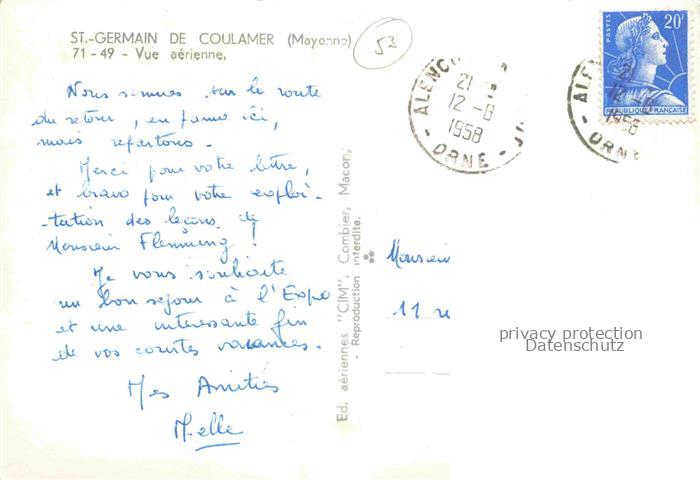 ST.-GERMAIN DE COULAMER (Mayenne)
71-49 - Vue aérienne.
53
Nous sommes sur la route
du retour, en panne ici,
mais repartons.
Merci pour votre lettre,
et bravo pour votre exploi-
-tation des leçons de
Monsieur Flemming !
Je vous souhaite
un bon séjour à l'Expo
et une intéressante fin
de vos courtes vacances.
Mes Amitiés
Melle
Ed. aériennes "CIM", Combier, Macon,
- Reproduction interdite.
ALENC
21
12-8
1958
ORNE
ALE
21
12
1958
ORNE
POSTES
20F
REPUBLIQUE FRANÇAISE
Monsieur
11 r
privacy protection
Datenschutz